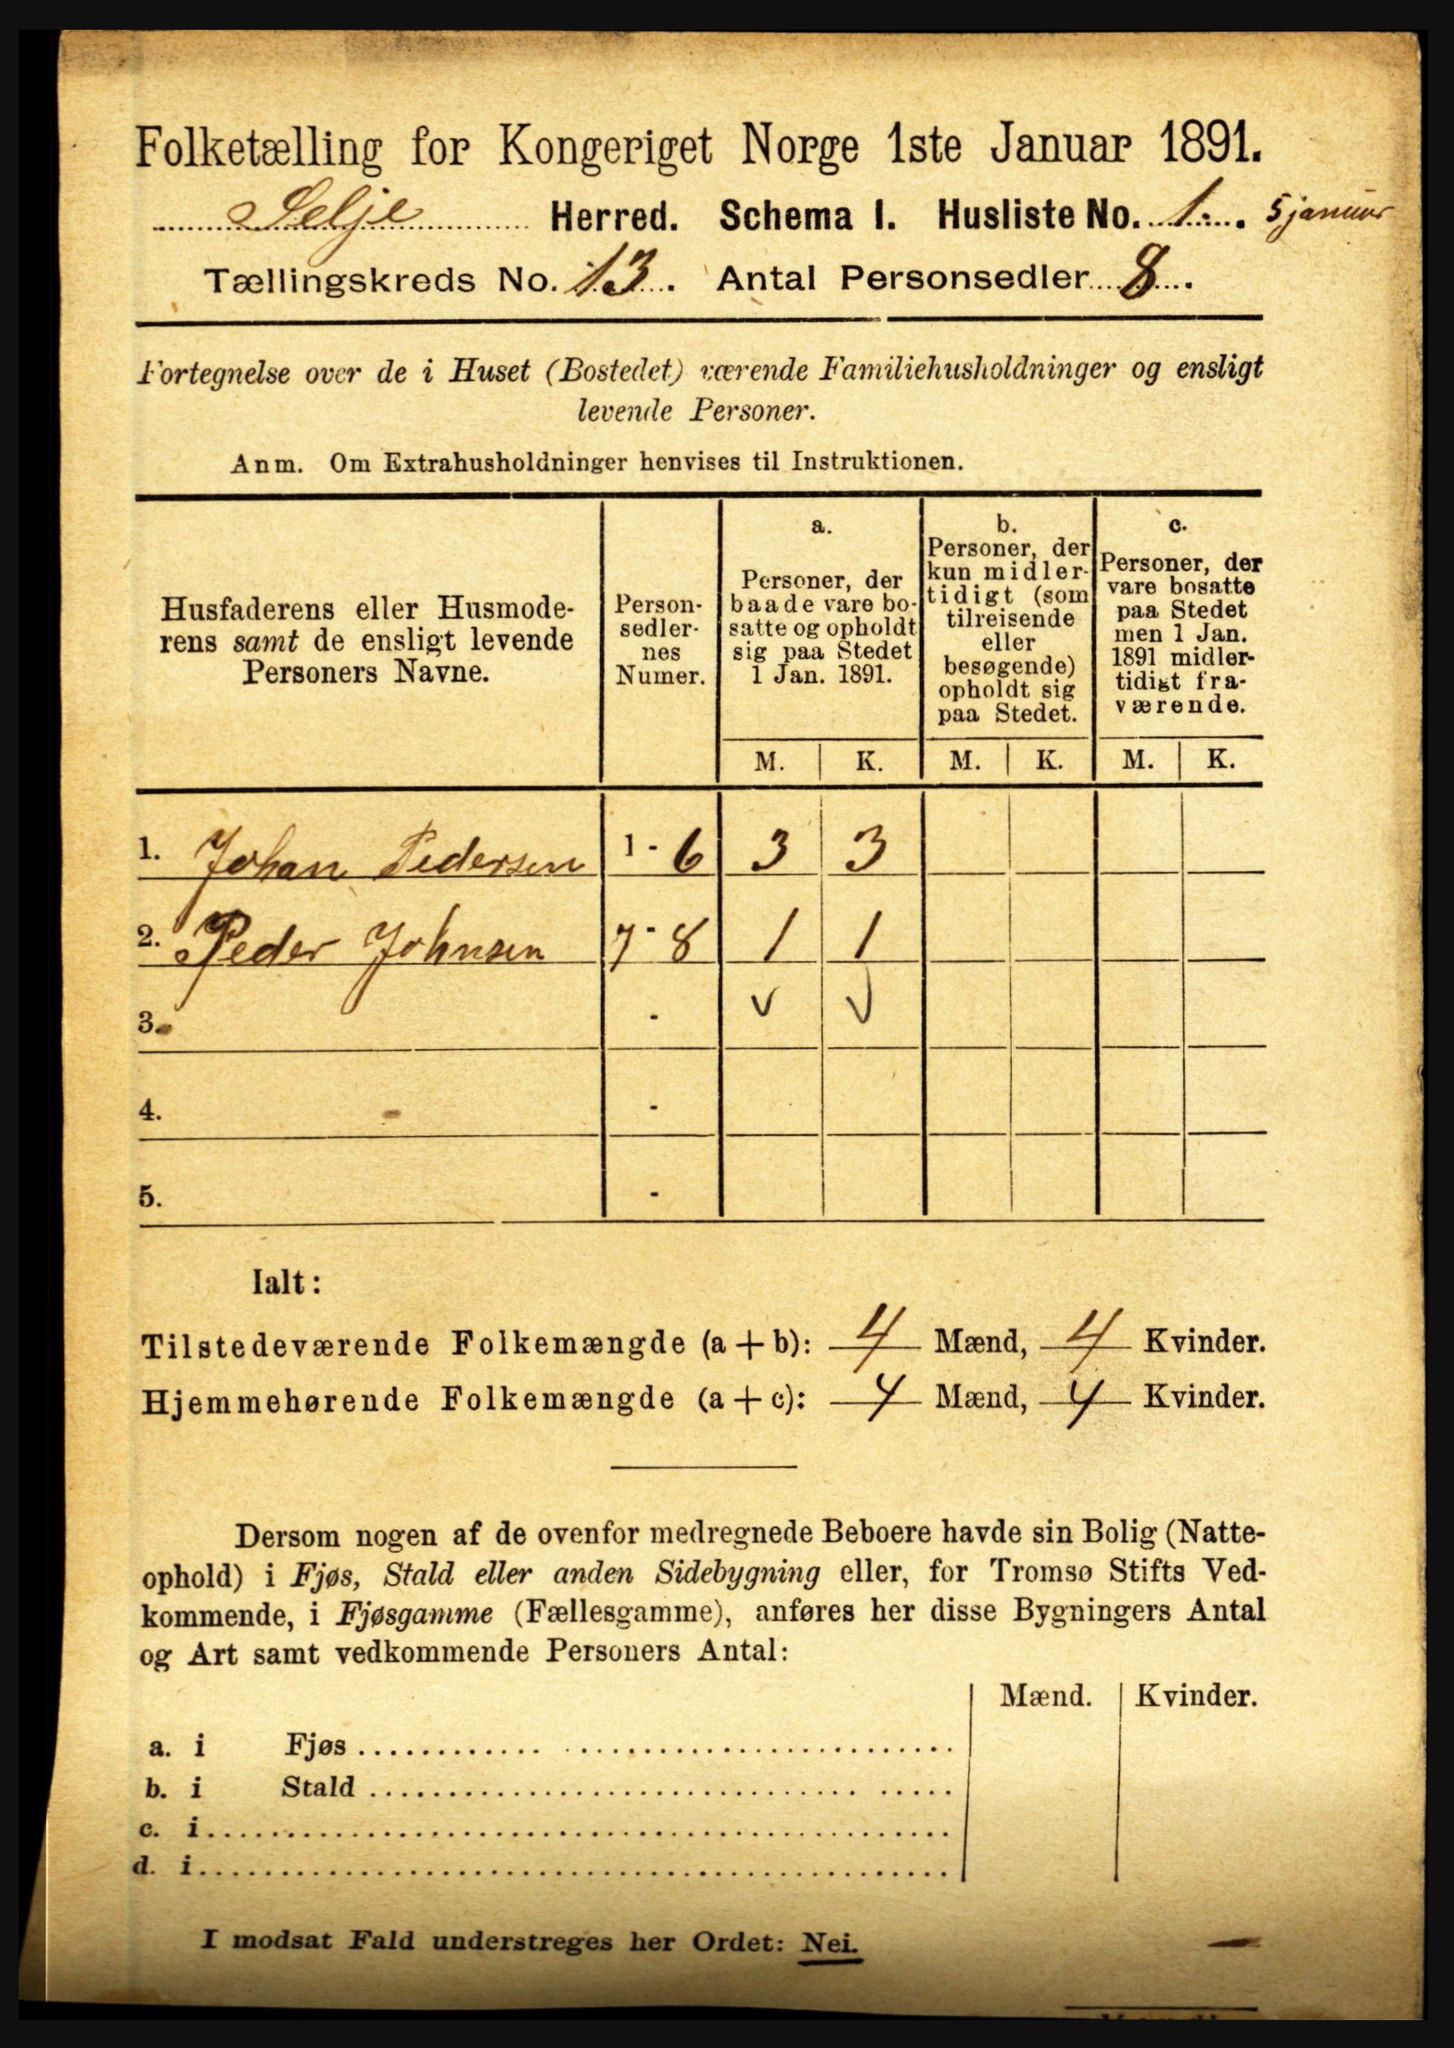 Folketælling for Kongeriget Norge 1ste Januar 1891.
Selje Herred. Schema I. Husliste No. 1. 5 januar
Tællingskreds No. 13. Antal Personsedler 8.
Fortegnelse over de i Huset (Bostedet) værende Familiehusholdninger og ensligt
levende Personer.
Anm. Om Extrahusholdninger henvises til Instruktionen.
Husfaderens eller Husmode-
rens samt de ensligt levende
Personers Navne.
Person-
sedler-
nes
Numer.
a.
Personer, der
baade vare bo-
satte og opholdt
sig paa Stedet
1 Jan. 1891.
b.
Personer, der
kun midler-
tidigt (som
tilreisende
eller
besøgende)
opholdt sig
paa Stedet.
c.
Personer, der
vare bosatte
paa Stedet
men 1 Jan.
1891 midler-
tidigt fra-
værende.
M. K. M. K. M. K.
1. Johan Pedersen 1 - 6 3 3
2. Peder Johnsen 7 - 8 1 1
3. - v v
4. -
5. -
Ialt:
Tilstedeværende Folkemængde (a + b): 4 Mænd, 4 Kvinder.
Hjemmehørende Folkemængde (a + c): 4 Mænd, 4 Kvinder.
Dersom nogen af de ovenfor medregnede Beboere havde sin Bolig (Natte-
ophold) i Fjøs, Stald eller anden Sidebygning eller, for Tromsø Stifts Ved-
kommende, i Fjøsgamme (Fællesgamme), anføres her disse Bygningers Antal
og Art samt vedkommende Personers Antal:
Mænd. Kvinder.
a. i Fjøs
b. i Stald
c. i
d. i
I modsat Fald understreges her Ordet: Nei.